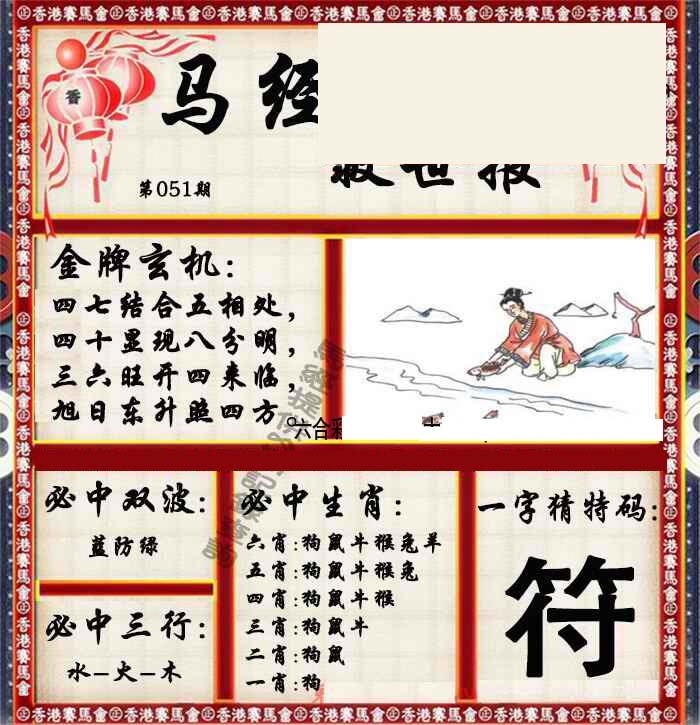 香港賽馬會
香
马经
救世报
第051期
金牌玄机:
四七结合五相处,
四十显现八分明,
三六旺开四来临,
旭日东升照四方。
六合彩
必中双波:
蓝防绿
必中三行:
水—火—木
必中生肖:
六肖:狗鼠牛猴兔羊
五肖:狗鼠牛猴兔
四肖:狗鼠牛猴
三肖:狗鼠牛
二肖:狗鼠
一肖:狗
一字猜特码:
符